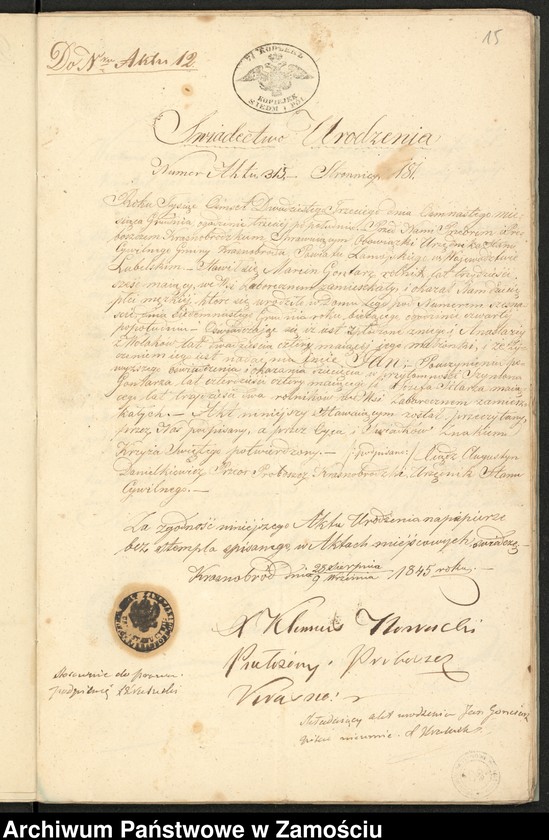 15
Do Nru Aktu 12
7½ KOPIEJEK
SIEDM I PÓŁ
Swiadectwo Urodzenia
Numer Aktu 313 Stronnica 151.
Roku Tysiąc Ośmset Dwudziestego Trzeciego dnia Ośmnastego mie-
siąca Grudnia o godzinie trzeciej po południu. Przed Nami Przeorem i Pro-
boszczem Krasnobrodzkim Sprawującym Obowiązki Urzędnika Stanu
Cywilnego Gminy Krasnobroda Powiatu Zamojskiego w Województwie
Lubelskim – Stawił się Marcin Gontarz rolnik lat trzydzieści
sześć mający, we Wsi zamieszkały, i okazał Nam dziecię
płci męzkiej, które się urodziło w Domu Jego pod Numerem
dnia Siedemnastego Grudnia roku bieżącego o godzinie czwartej
popołudniu – Oświadczając że jest spłodzone z niego i Anastazyi
z Wolaków lat dwadzieścia cztery mającej jego małżonki, i że ży-
czeniem jego jest nadać mu Imie Jan – Po uczynieniu po-
wyższego oświadczenia i okazaniu dziecięcia w przytomności Szymona
Gontarza lat czterdzieści cztery mającego i Józefa mają-
cego lat trzydzieści dwa rolników we Wsi zamiesz-
kałych – Akt niniejszy Stawającym został przeczytany,
przez Nas podpisany, a przez Ojca i Świadków Znakiem
Krzyża Świętego potwierdzony. – /podpisano/ Xiądz Augustyn
Danielkiewicz Przeor Proboszcz Krasnobrodzki Urzędnik Stanu
Cywilnego. –
Za zgodność niniejszego Aktu Urodzenia na papierze
bez stempla spisanego w Aktach miejscowych świadczę –
Krasnobród dnia 28 Sierpnia / 9 Września 1845 roku. –
X Klemens Nowacki
Przełożony Proboszcz
Krasno:
Stosownie do
Stawający akt urodzenia Jan Gonciarz
pisać nieumie.
Archiwum Państwowe w Zamościu